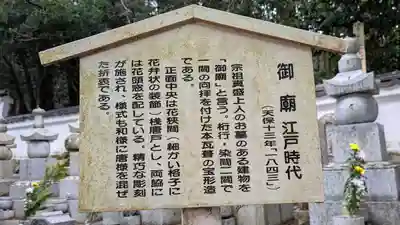 御廟 江戸時代
（天保十三年「一八四三」）
宗祖真盛上人のお墓のある建物を
「御廟」と言う。桁行・梁間二間で
一間の向拝を付けた本瓦葺の宝形造
である。
正面中央は花狭間（細かい格子に
花弁状の装飾）桟唐戸とし、両脇に
は花頭窓を配している。精巧な彫刻
が施され、様式も和様に唐様を混ぜ
た折衷である。